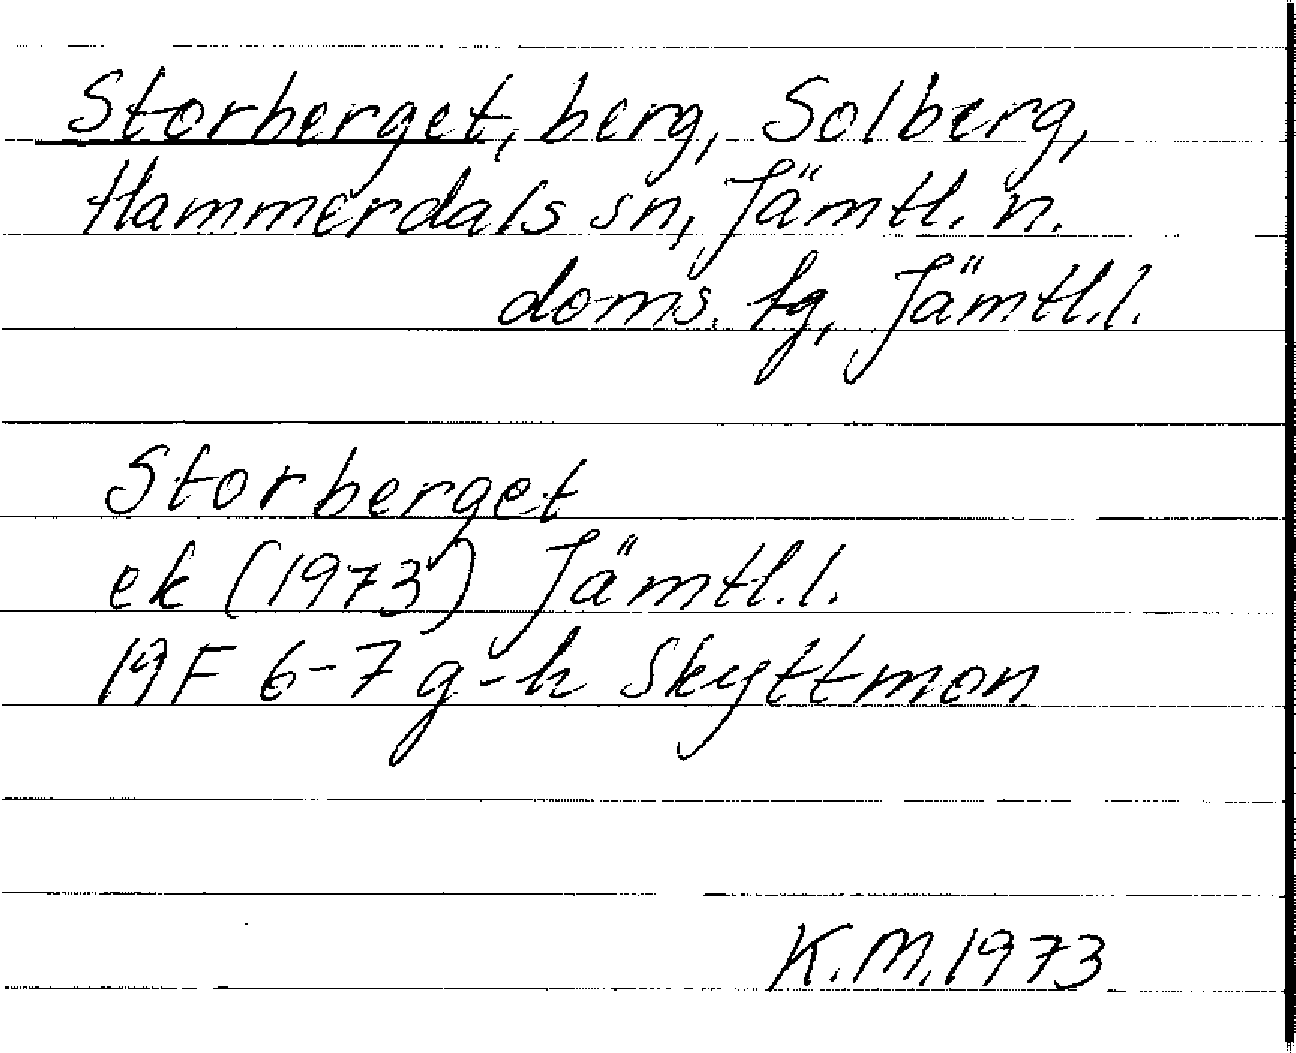 Storberget, berg, Solberg,
Hammerdals sn, Jämtl. n.
doms. tg, Jämtl.l.
Storberget
ek (1973) Jämtl.l.
19F 6-7 g-h Skyttmon
K.M. 1973